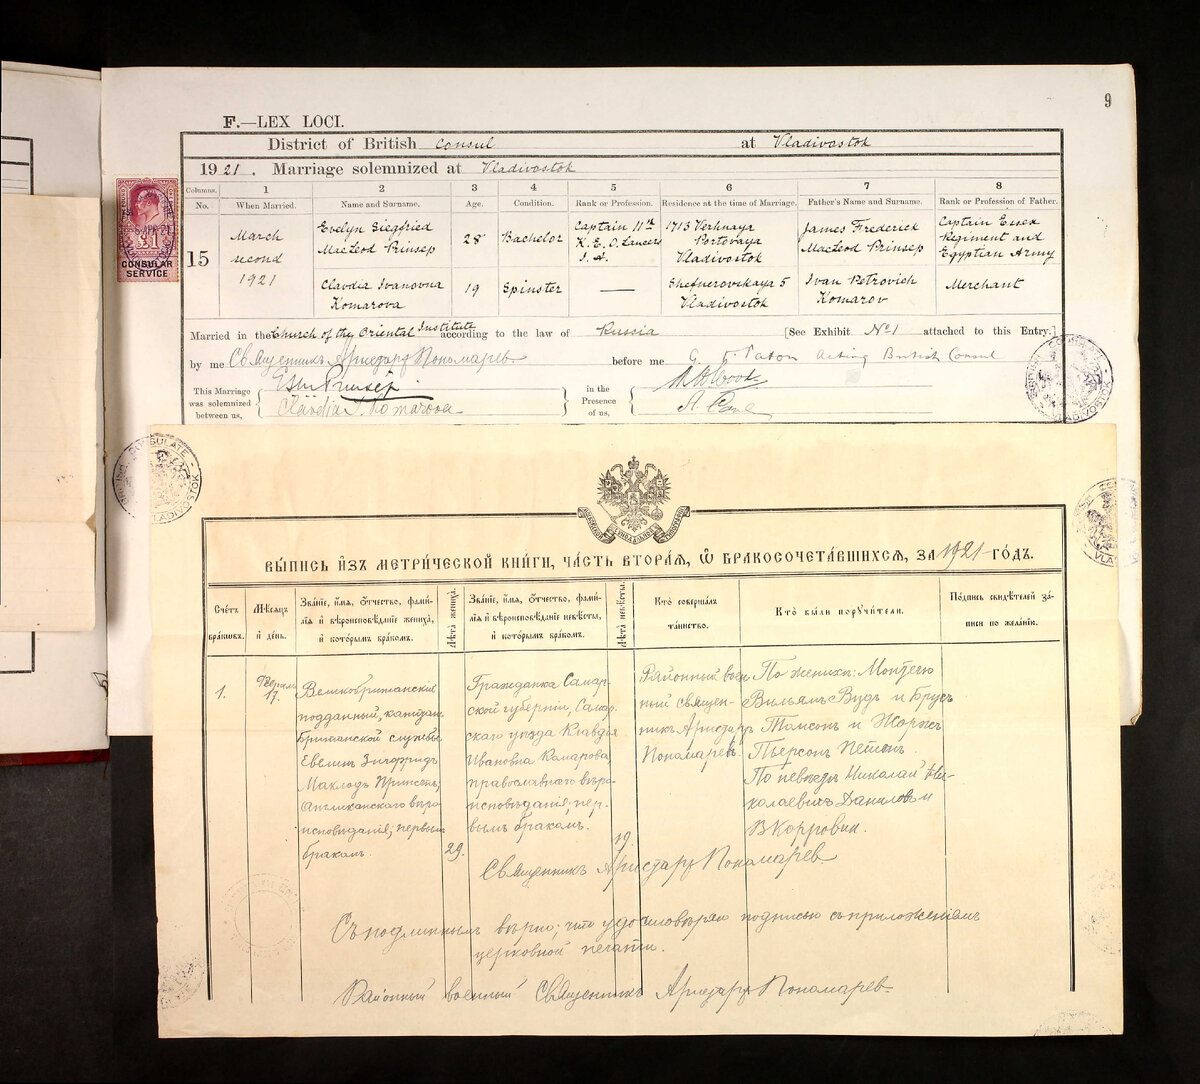 9
F.—LEX LOCI.
District of British Consul at Vladivostok
1921. Marriage solemnized at Vladivostok
Columns. 1 2 3 4 5 6 7 8
No. When Married. Name and Surname. Age. Condition. Rank or Profession. Residence at the time of Marriage. Father's Name and Surname. Rank or Profession of Father.
15
March
second
1921
Evelyn Siegfried
MacLeod Prinsep
28
Bachelor
Captain 11th
K. E. O. Lancers
I. A.
1713 Verhnaya
Portovaya
Vladivostok
James Frederick
MacLeod Prinsep
Captain Essex
Regiment and
Egyptian Army
Clavdia Ivanovna
Komarova
19
Spinster
—
Shefnerovskaya 5
Vladivostok
Ivan Petrovich
Komarov
Merchant
£1
CONSULAR
SERVICE
Married in the Church of the Oriental Institute according to the law of Russia [See Exhibit No 1 attached to this Entry.]
by me Священникъ Аристархъ Пономарев before me G. Paton Acting British Consul
This Marriage
was solemnized
between us,
Claudia I. Komarova
in the
Presence
of us,
BRITISH CONSULATE VLADIVOSTOK
ВЫ́ПИСЬ И҆ЗЪ МЕТРИ́ЧЕСКОЙ КНИ́ГИ, ЧА́СТЬ ВТОРА́Я, Ѽ БРАКОСОЧЕТА́ВШИХСЯ, ЗА 1921 ГО́ДЪ.
Сче́тъ
бра́ковъ.
Мѣ́сяцъ
и҆ де́нь.
Зва́нїе, и҆́мя, ѻ҆́тчество, фами́-
лїя и҆ вѣроисповѣ́данїе жениха̀,
и҆ кото́рымъ бра́комъ.
Лѣта̀ жениха̀.
Зва́нїе, и҆́мя, ѻ҆́тчество, фами́-
лїя и҆ вѣроисповѣ́данїе невѣ́сты,
и҆ кото́рымъ бра́комъ.
Лѣта̀ невѣ́сты.
Кто̀ соверша́лъ
та́инство.
Кто̀ бы́ли поручи́тели.
По́дпись свидѣ́телей за́-
писи по жела́нїю.
1.
Февраль
17.
Великобританскій
подданный, капитан
Британской службы
Евелин Зигфридъ
Маклодъ Принсепъ,
Англиканскаго веро-
исповѣданія; первымъ
бракомъ.
29.
Гражданка Самар-
ской губерніи, Самар-
скаго уезда Клавдія
Ивановна Комарова,
православнаго вѣро-
исповѣданія; пер-
вымъ бракомъ.
19.
Районный воен-
ный священ-
никъ Аристархъ
Пономаревъ.
По женихѣ: Монтегю
Вильямъ Вудъ и Брусъ
Томсонъ и Жоржъ
Пьерсонъ Петонъ.
По невѣстѣ: Николай Ни-
колаевич Данилов и
В Корровин.
Священникъ Аристархъ Пономарев
Съ подлиннымъ вѣрно; что удостовѣряю подписью съ приложеніемъ
церковной печати.
Районный военный Священникъ Аристархъ Пономарев